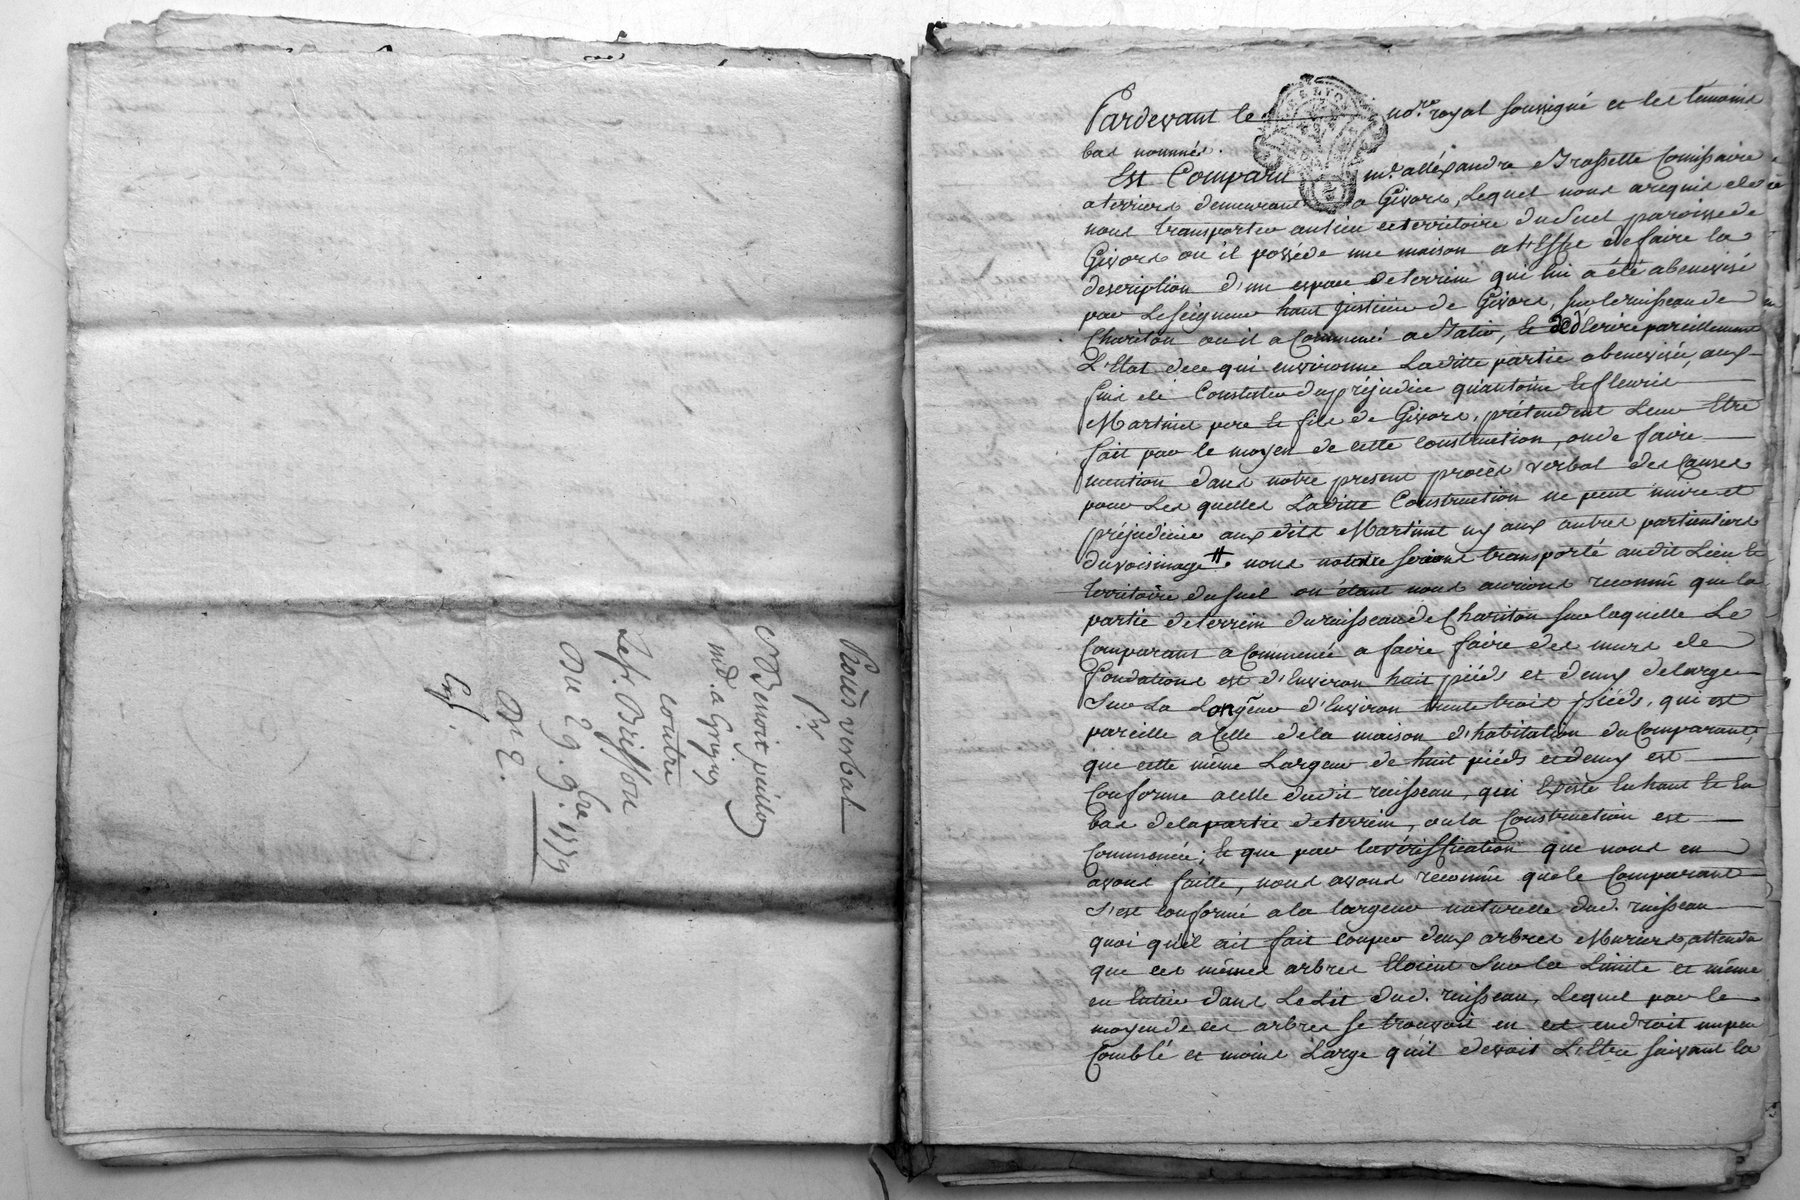 Procès verbal
Pr
Sr Benoit paillo
md. a Grigny
contre
Jos. Brisson
Du 29. 9bre 1779
Pardevant le no.re royal soussigné et les temoins
bas nommés.
Est Comparu mr. alléxandre Comissaire
a terriers demeurant a Givors, Lequel nous a requis de
nous transporter au lieu et territoire du Suel paroisse de
Givors ou il possède une maison a l'effet de faire la
description d'un espace de terrein qui lui a été abenevisé
par Le seigneur haut justicier de Givors, sur le ruisseau de
Chariton ou il a Commencé a Batir, Et décrire pareillement
L'Etat de ce qui environne Laditte partie abenevisée, aux
fins de Constater du préjudice qu'antoine Et fleuris
Martinet pere Et fils de Givors, prétendent Leur Etre
fait par le moyen de cette construction, ou de faire
mention dans notre present procès verbal des Causes
pour Les quelles Laditte Construction ne peut nuire et
préjudicier aux dits Martinet ny aux autres particuliers
du voisinage #. nous notaire serions transporté audit Lieu Et
territoire du Suel ou étant nous aurions reconnû que la
partie de terrein du ruisseau de Chariton sur laquelle Le
Comparant a Commencé a faire faire des murs de
fondations est d'Environ huit piéds et demy de large
Sur La Longeur d'Environ trente trois piéds, qui est
pareille a Celle de la maison d'habitation du Comparant,
que cette même Largeur de huit piéds et demy est
Conforme a celle dudit ruisseau, qui Existe En haut Et En
bas de la partie de terrein, ou la Construction est
Commencée; Et que par la vériffication que nous en
avons faitte, nous avons reconnû que le Comparant
s'est conformé a la largeur naturelle dud. ruisseau
quoi qu'il ait fait couper deux arbres Muriers, attendu
que ces mêmes arbres Etoient Sur la Limite et même
en Entier dans Le Lit dud. ruisseau, Lequel par le
moyen de ces arbres se trouvoit en cet endroit un peu
Comblé et moins Large qu'il devoit L'Etre suivant la